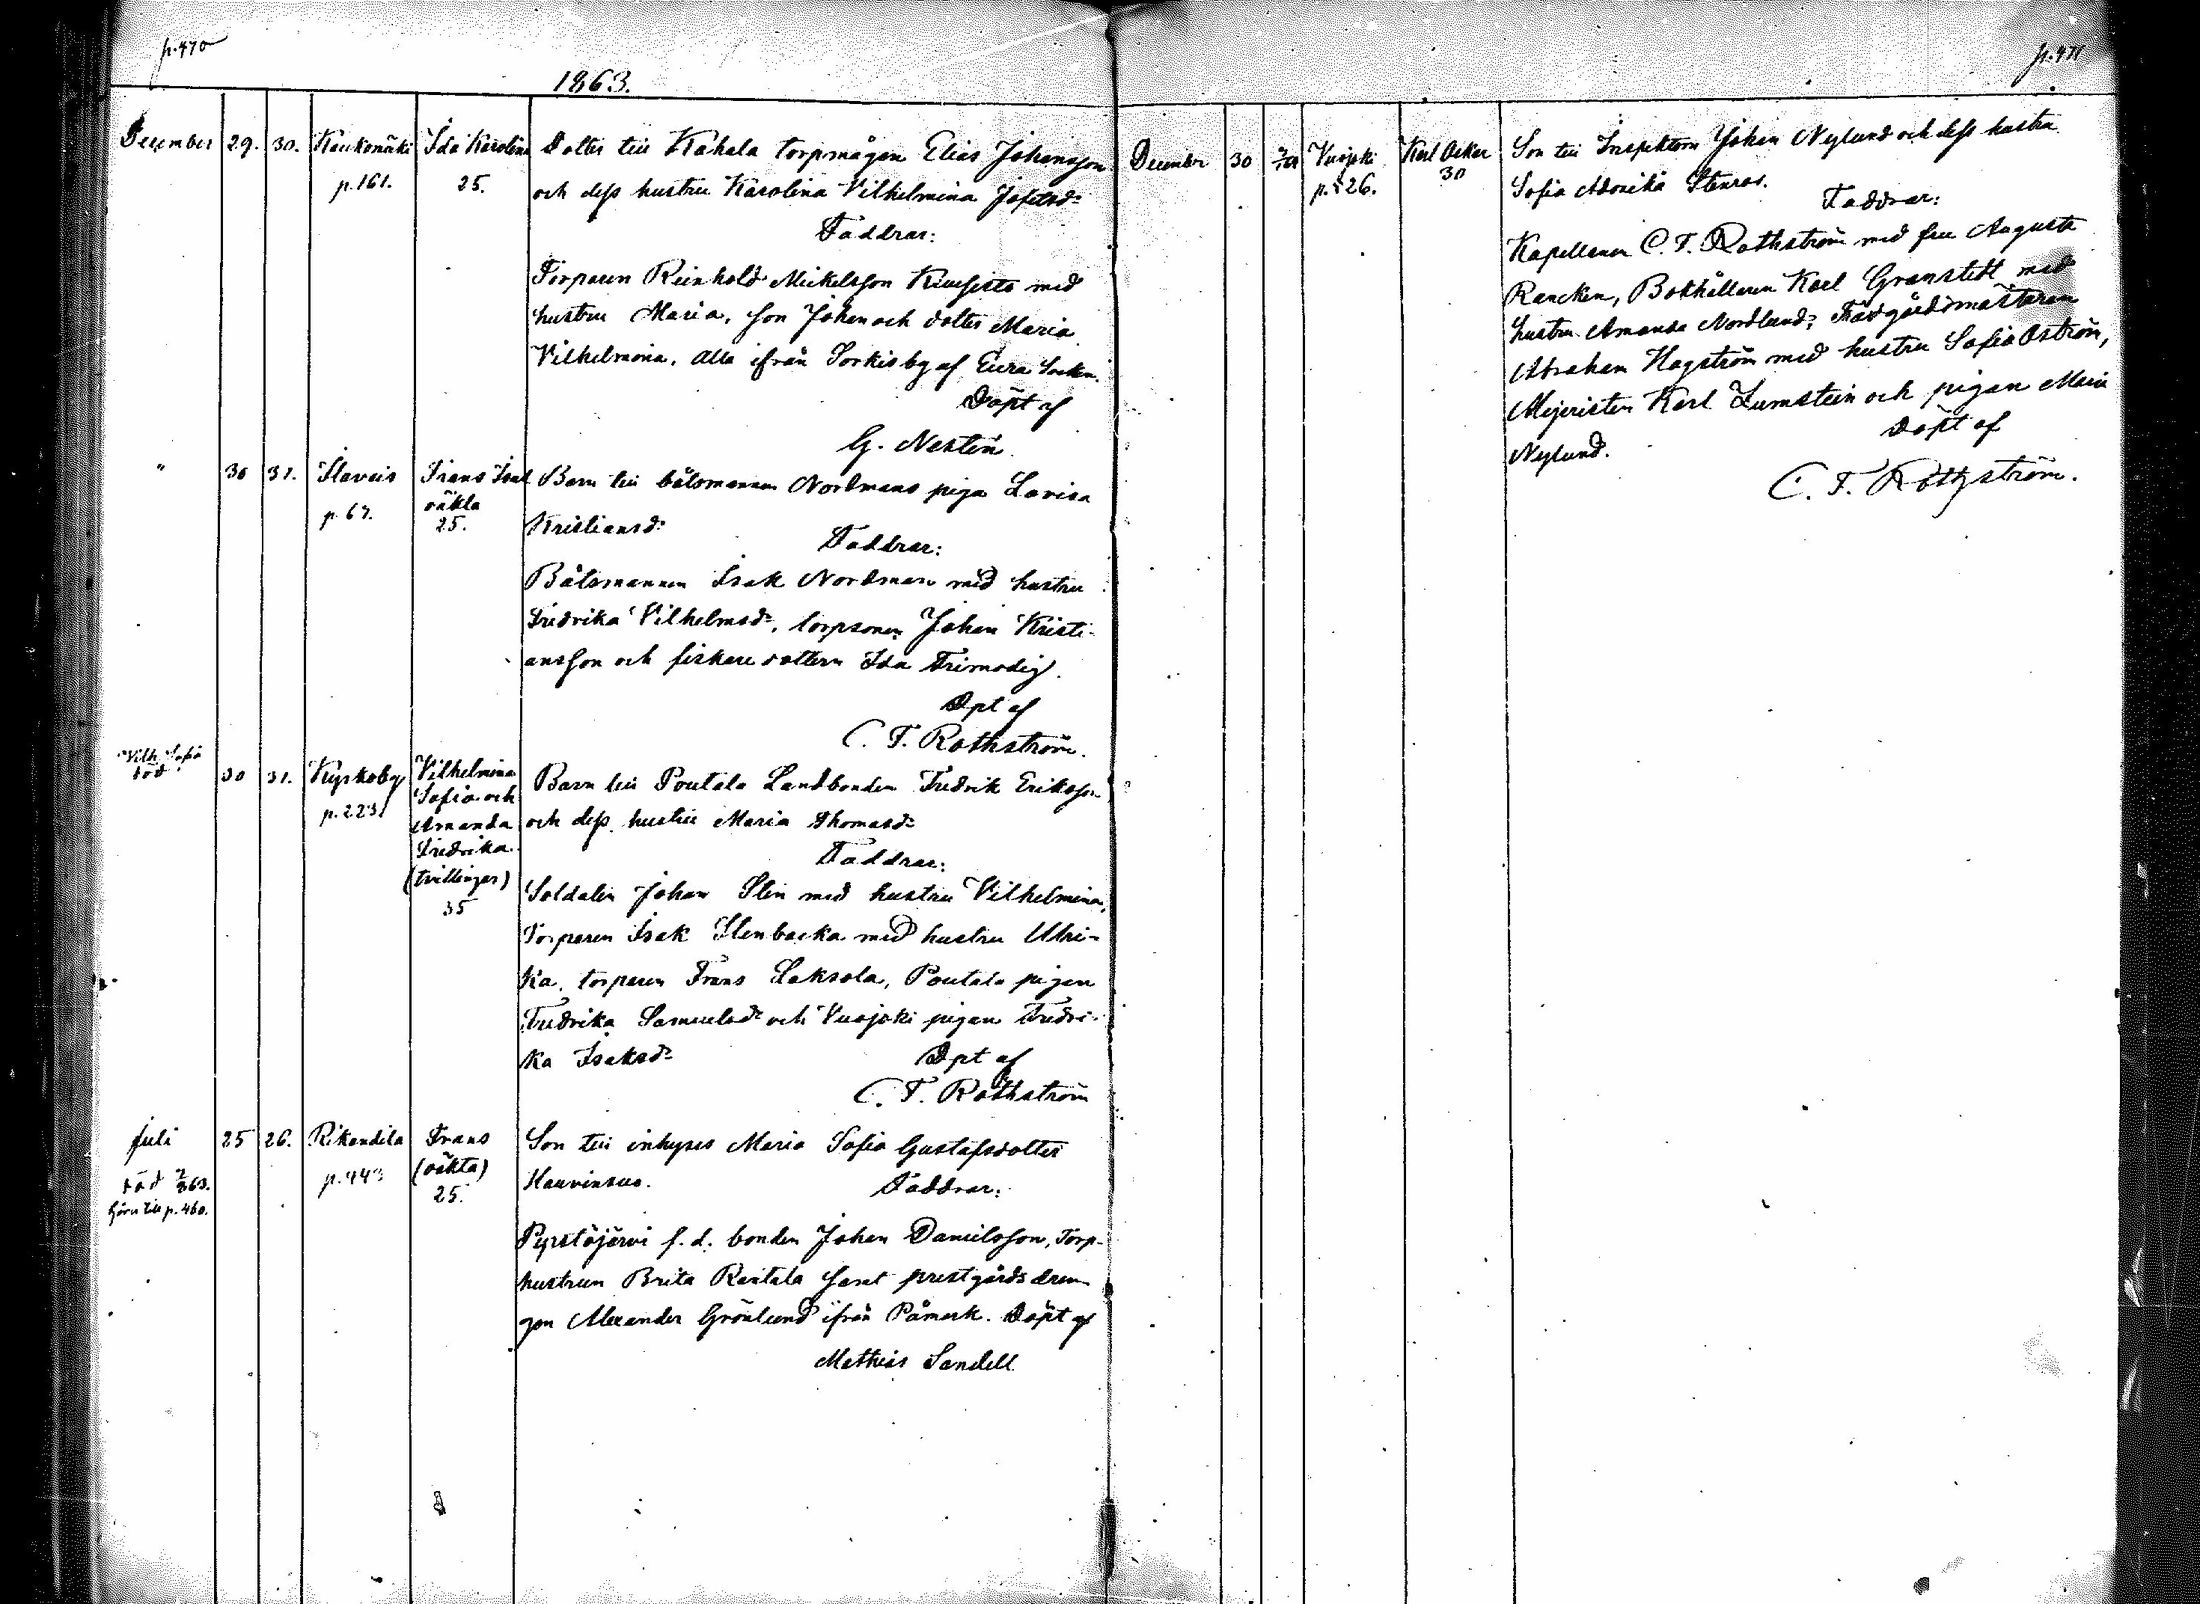 p. 470
1863.
December 29. 30. Kaukomäki Ida Karolina Dotter till Kahala torpmågen Elias Johansson
p. 161. 25. och dess hustru Karolina Vilhelmina Jafetsdr
Faddrar:
Torparen Reinhold Mickelsson Kiusisto med
hustru Maria, son Johan och dotter Maria
Vilhelmina, alla ifrån Sorkis by af Eura Socken.
Döpt af
G. Nestén.
" 30 31. Ilavais Frans Isak Barn till båtsmannen Nordmans piga Lovisa
p. 67. oäkta Kristiansdr
25. Faddrar:
Båtsmannen Isak Nordman med hustru
Fredrika Vilhelmsdr, torpsonen Johan Kristi-
ansson och fiskare dottern Ida Frimodig.
Dpt af
C. F. Rothström.
Vilh. Sofia
död 30 31. Kyrkoby Vilhelmina Barn till Poutala Landbonden Fredrik Eriksson
p. 223. Sofia och
Amanda och dess hustru Maria Thomasdr
Fredrika Faddrar:
(tvillingar) Soldaten Johan Sten med hustru Vilhelmina,
35 Torparen Isak Stenbacka med hustru Ulri-
ka, torparen Frans Laksola, Poutala pigan
Fredrika Samuelsdr och Vuojoki pigan Fredri-
ka Isaksdr Dpt af
C. F. Rothström
Juli 25 26. Rikandila Frans Son till inhyses Maria Sofia Gustafsdotter
död 7/8 63. p. 443 (oäkta) Hauvinsuo. Faddrar:
hörer till p. 460. 25.
Pyrstöjärvi f. d. bonden Johan Danielsson, Torp-
hustrun Brita Rantala samt prestgårds drän-
gen Alexander Grönlund ifrån Påmark. Döpt af
Mathias Sandell.
p. 471
December 30 Vuojoki Karl Oskar Son till Inspektorn Johan Nylund och dess hustru
p. 526. 30 Sofia Adorika Stenros.
Faddrar:
Kapellanen C. F. Rothström med fru Augusta
Rancken, Bokhållaren Karl Granstedt med
hustru Amanda Nordlund, Trädgårdsmästaren
Abraham Hagström med hustru Sofia Öström,
Mejeristen Karl Zumstein och pigan Maria
Nylund. Döpt af
C. F. Rothström.